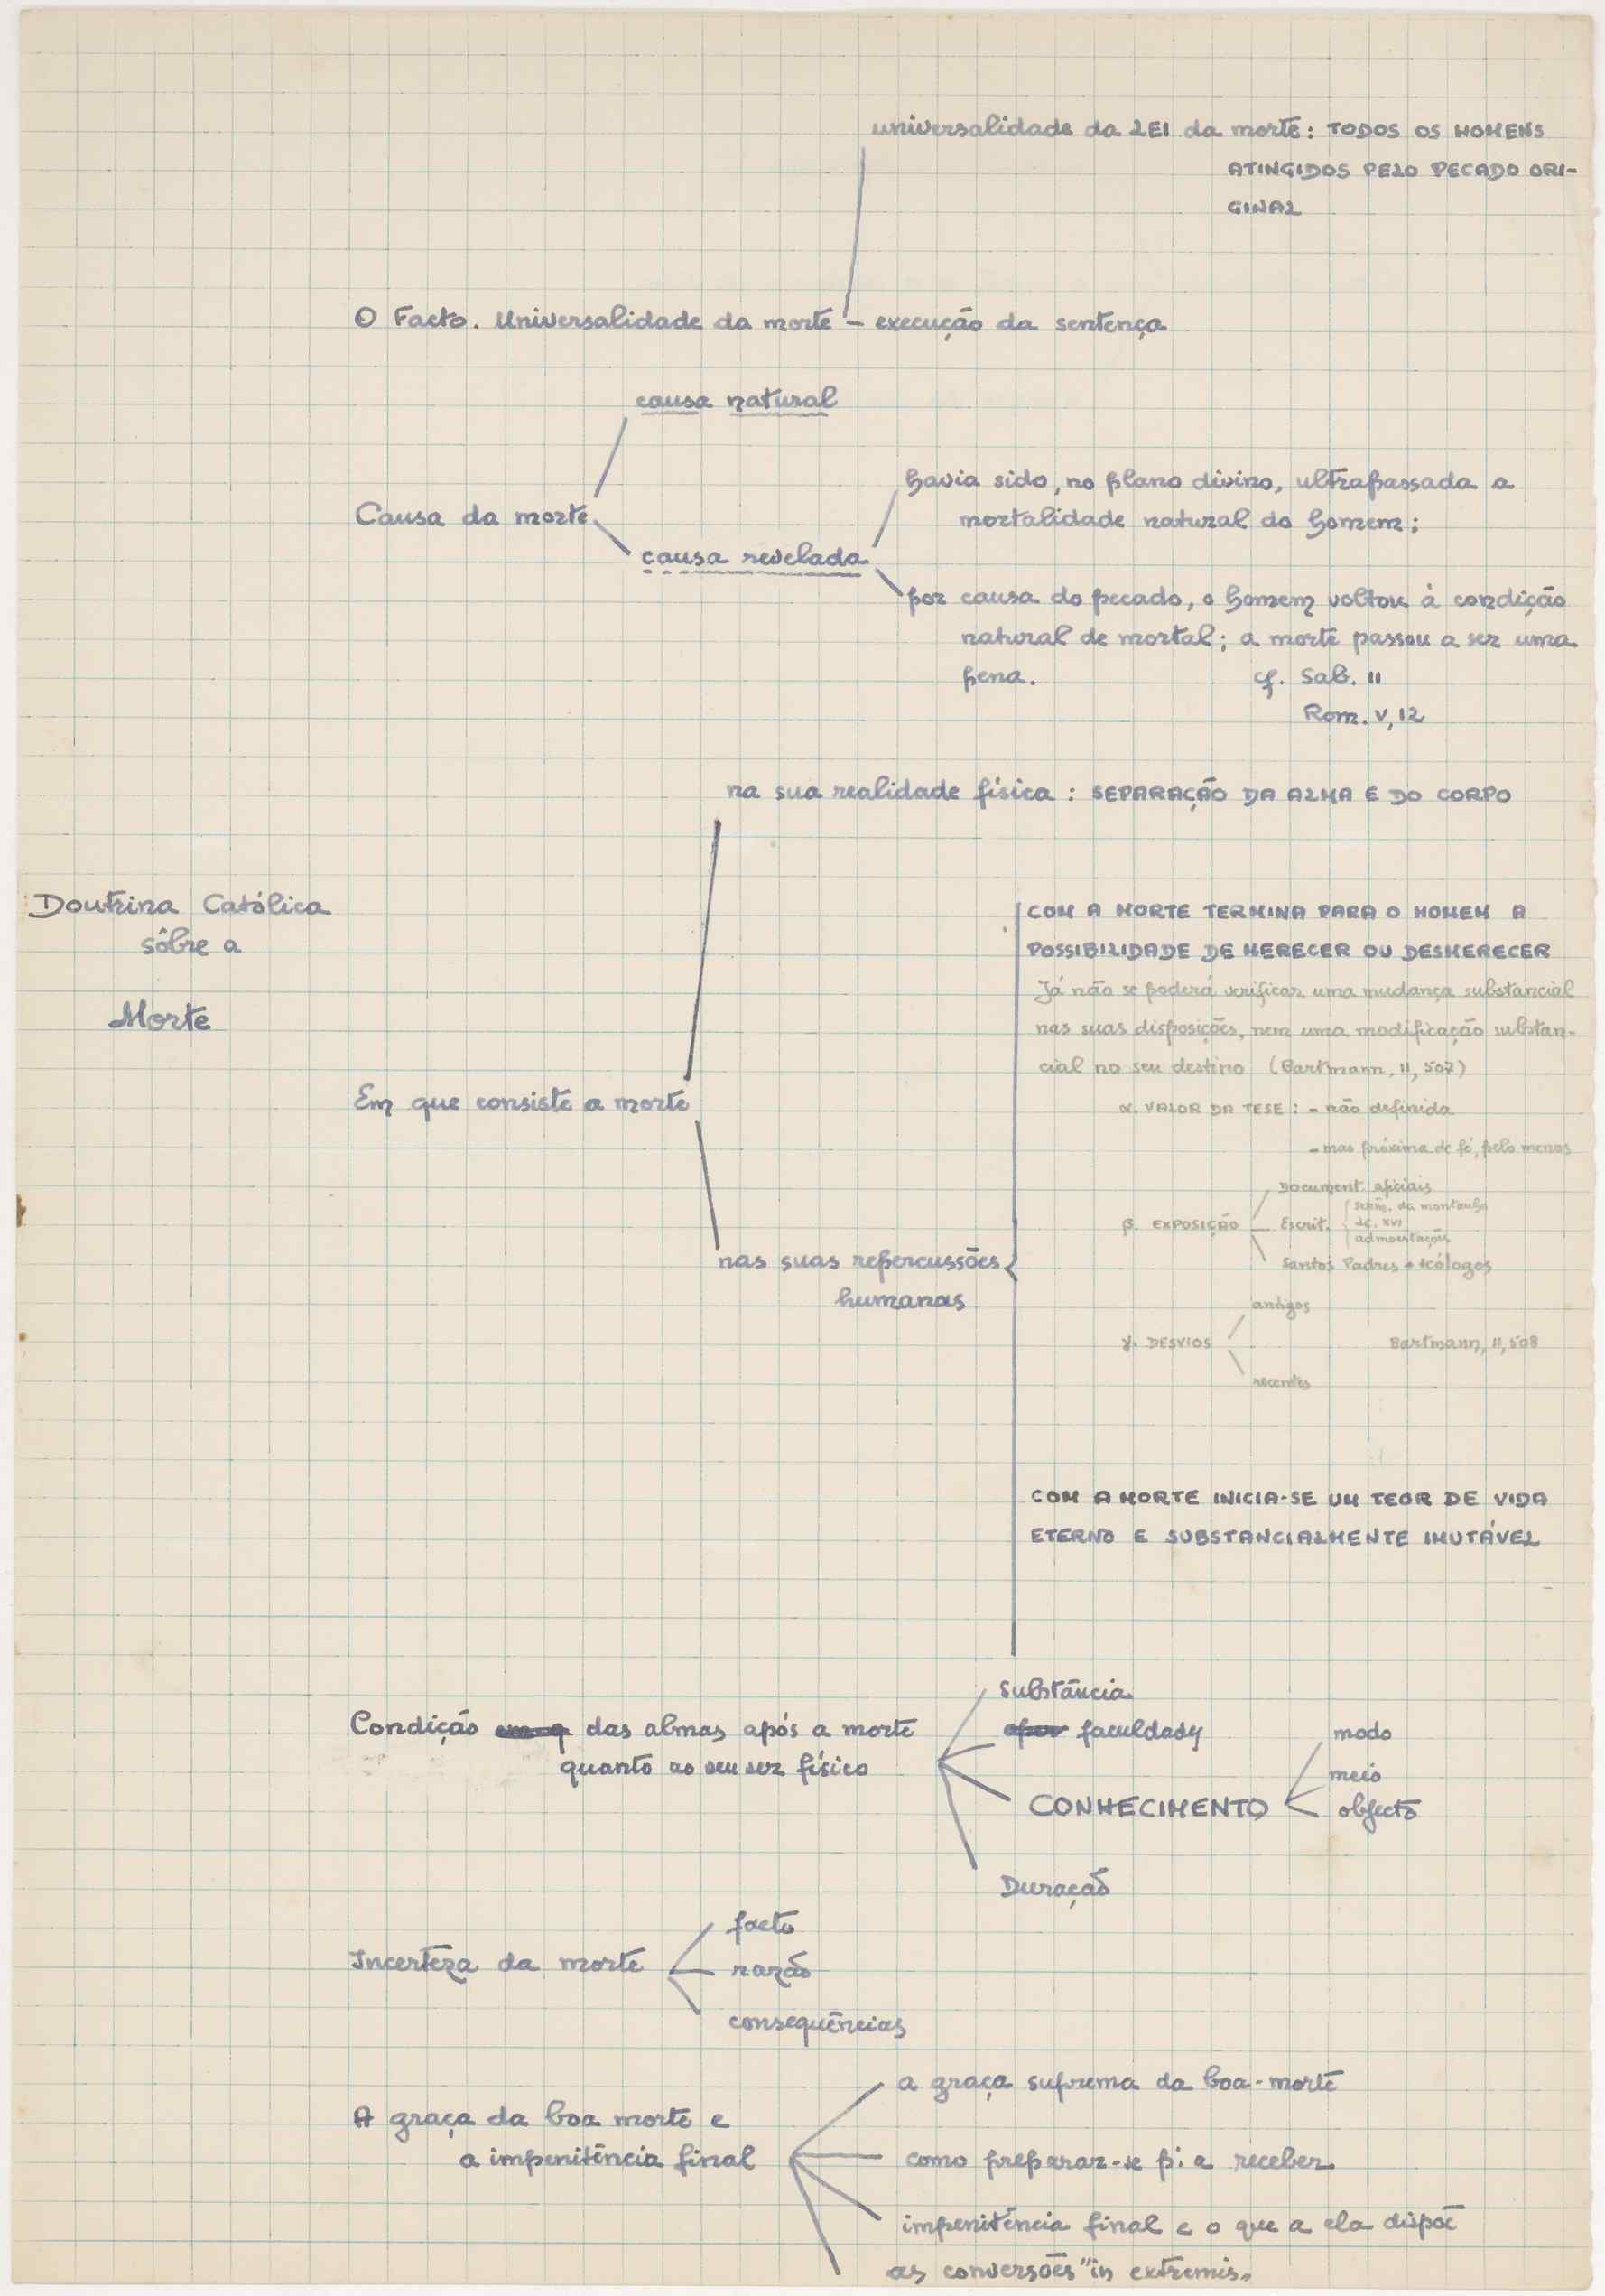 universalidade da LEI da morte: TODOS OS HOMENS
ATINGIDOS PELO PECADO ORI-
GINAL
O Facto. Universalidade da morte – execução da sentença
causa natural
Causa da morte
causa revelada
havia sido, no plano divino, ultrapassada a
mortalidade natural do homem;
por causa do pecado, o homem voltou à condição
natural de mortal; a morte passou a ser uma
pena. cf. Sab. II
Rom. V, 12
na sua realidade física : SEPARAÇÃO DA ALMA E DO CORPO
Doutrina Católica
sôbre a
Morte
Em que consiste a morte
nas suas repercussões
humanas
COM A MORTE TERMINA PARA O HOMEM A
POSSIBILIDADE DE MERECER OU DESMERECER
Já não se poderá verificar uma mudança substancial
nas suas disposições, nem uma modificação substan-
cial no seu destino (Bartmann, II, 507)
α. VALOR DA TESE : – não definida
– mas próxima de fé, pelo menos
β. EXPOSIÇÃO
Document. oficiais
Escrit.
serm. da montanha
Lc. XVI
admoestações
Santos Padres + teólogos
γ. DESVIOS
antigos
recentes
Bartmann, II, 508
COM A MORTE INICIA-SE UM TEOR DE VIDA
ETERNO E SUBSTANCIALMENTE IMUTÁVEL
Condição das almas após a morte
quanto ao seu ser físico
substância
faculdades
CONHECIMENTO
modo
meio
objecto
Duração
Incerteza da morte
facto
razão
consequências
A graça da boa morte e
a impenitência final
a graça suprema da boa-morte
como preparar-se p: a receber
impenitência final e o que a ela dispõe
as conversões "in extremis"